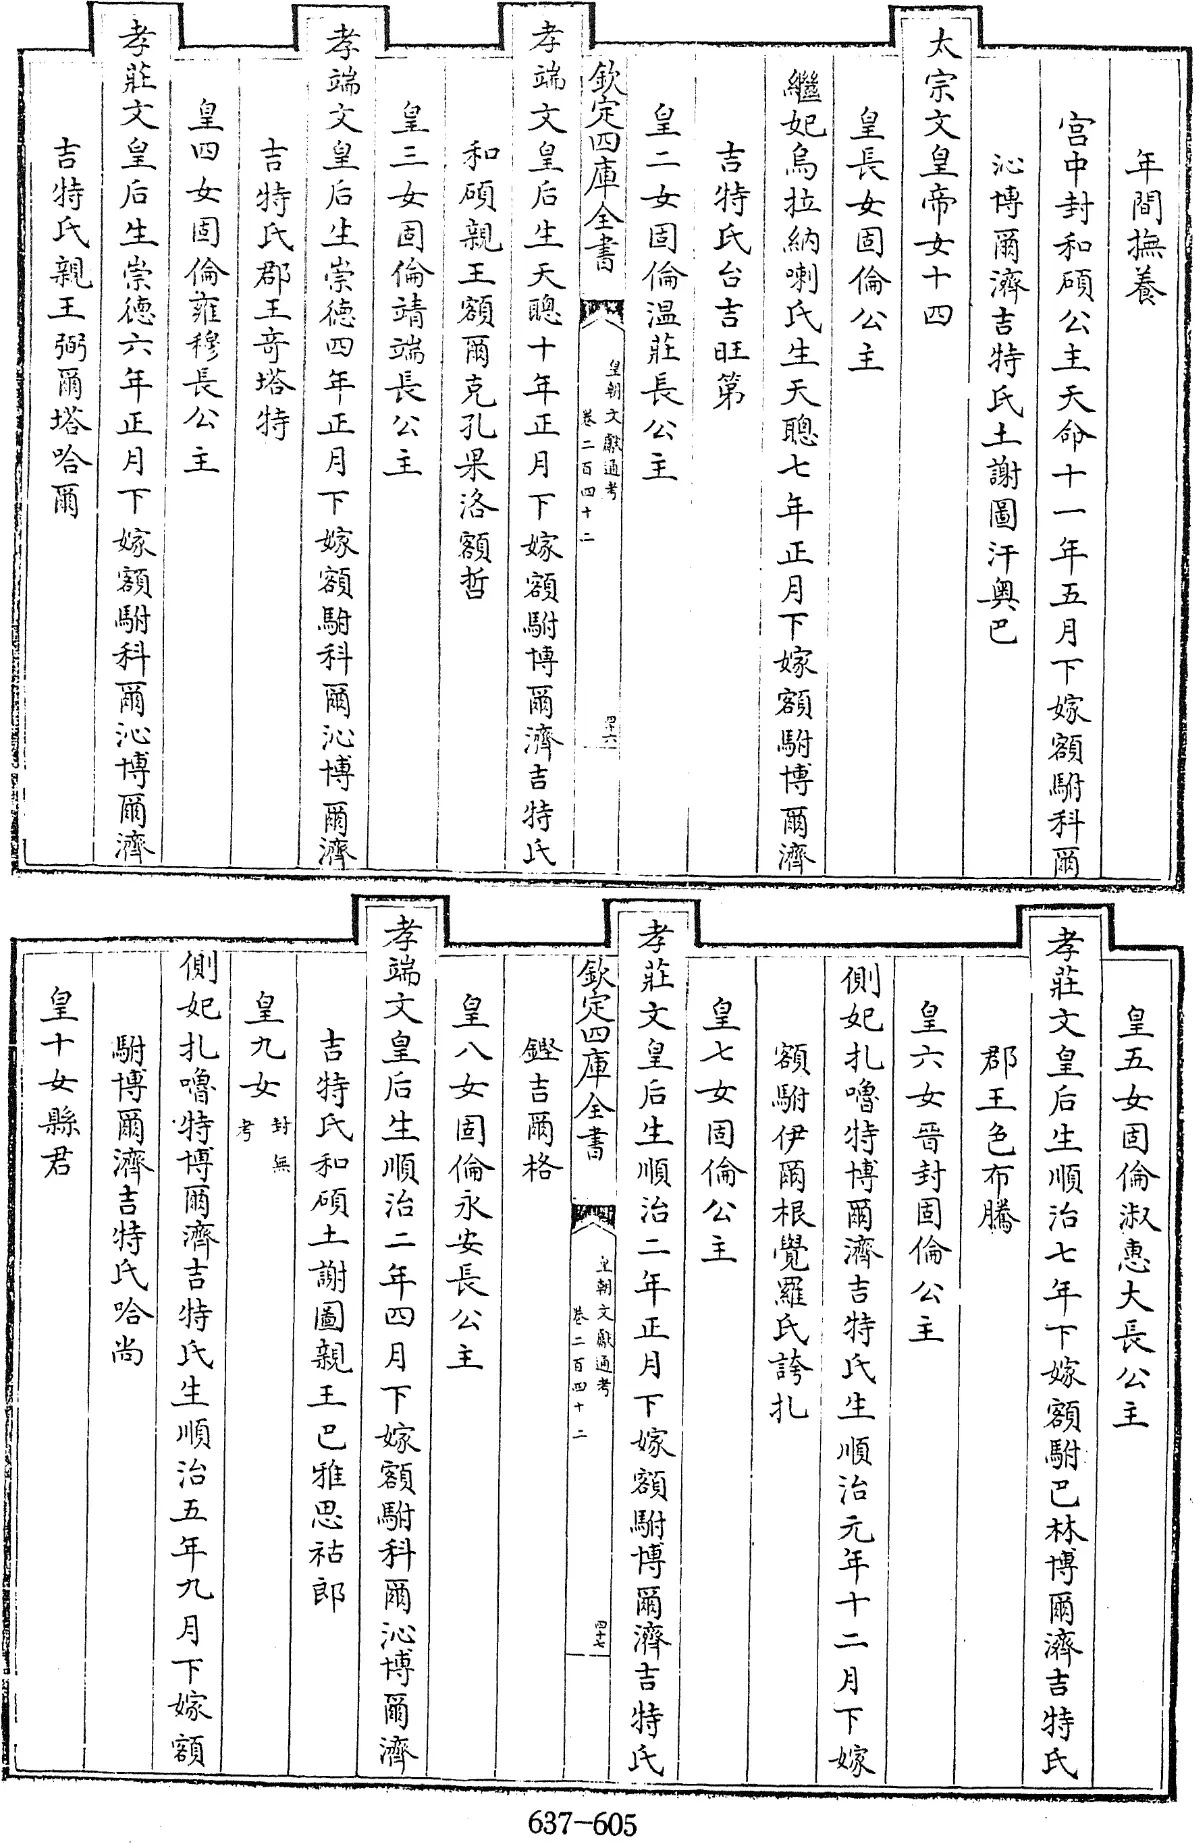 年間撫養
宫中封和碩公主天命十一年五月下嫁額駙科爾
沁博爾濟吉特氏土謝圖汗奥巴
太宗文皇帝女十四
皇長女固倫公主
繼妃烏拉納喇氏生天聰七年正月下嫁額駙博爾濟
吉特氏台吉旺第
皇二女固倫温莊長公主
欽定四庫全書
皇朝文獻通考
卷二百四十二
四十六
孝端文皇后生天聰十年正月下嫁額駙博爾濟吉特氏
和碩親王額爾克孔果洛額哲
皇三女固倫靖端長公主
孝端文皇后生崇德四年正月下嫁額駙科爾沁博爾濟
吉特氏郡王竒塔特
皇四女固倫雍穆長公主
孝莊文皇后生崇德六年正月下嫁額駙科爾沁博爾濟
吉特氏親王弼爾塔哈爾
皇五女固倫淑惠大長公主
孝莊文皇后生順治七年下嫁額駙巴林博爾濟吉特氏
郡王色布騰
皇六女晉封固倫公主
側妃扎嚕特博爾濟吉特氏生順治元年十二月下嫁
額駙伊爾根覺羅氏誇扎
皇七女固倫公主
孝莊文皇后生順治二年正月下嫁額駙博爾濟吉特氏
欽定四庫全書
皇朝文獻通考
卷二百四十二
四十七
鏗吉爾格
皇八女固倫永安長公主
孝端文皇后生順治二年四月下嫁額駙科爾沁博爾濟
吉特氏和碩土謝圖親王巴雅思祜郎
皇九女封無考
側妃扎嚕特博爾濟吉特氏生順治五年九月下嫁額
駙博爾濟吉特氏哈尚
皇十女縣君
637-605